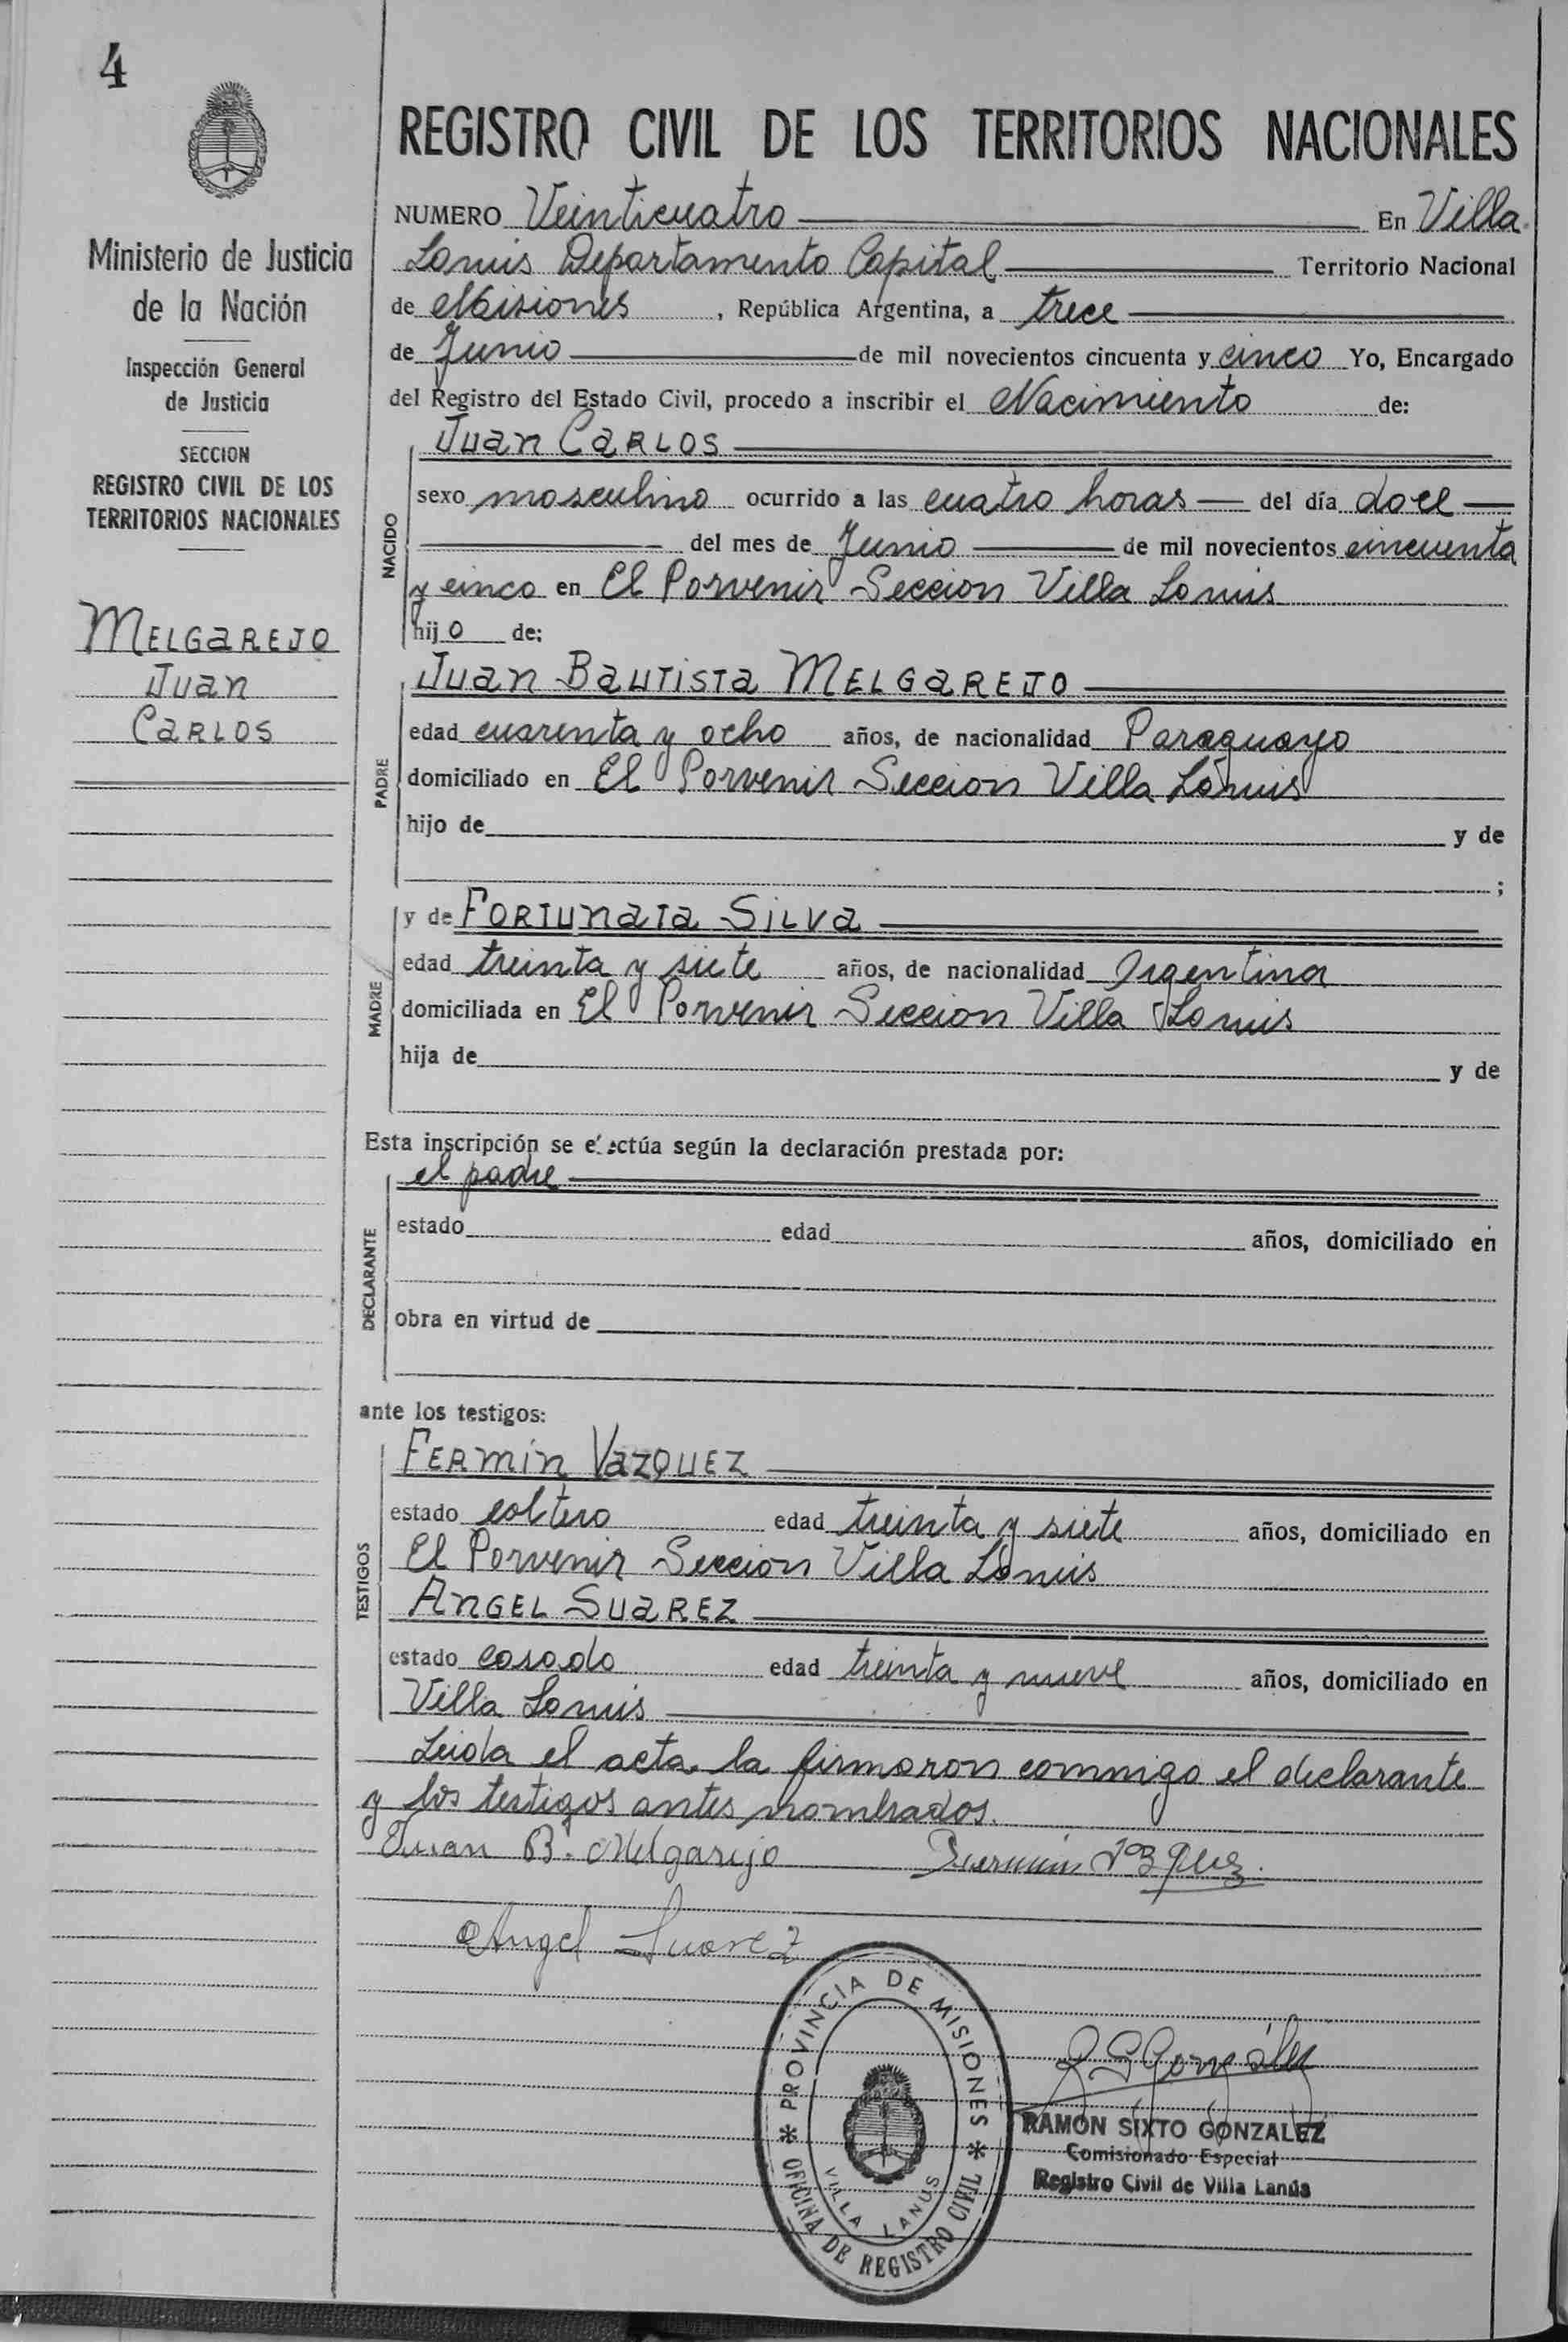 4
Ministerio de Justicia
de la Nación
Inspección General
de Justicia
SECCION
REGISTRO CIVIL DE LOS
TERRITORIOS NACIONALES
MELGAREJO
Juan
CARLOS
REGISTRO CIVIL DE LOS TERRITORIOS NACIONALES
NUMERO Veinticuatro En Villa
Lanus Departamento Capital Territorio Nacional
de Misiones, República Argentina, a trece
de Junio de mil novecientos cincuenta y cinco Yo, Encargado
del Registro del Estado Civil, procedo a inscribir el Nacimiento de:
NACIDO
Juan CARLOS
sexo masculino ocurrido a las cuatro horas del día doce
del mes de Junio de mil novecientos cincuenta
y cinco en El Porvenir Seccion Villa Lanus
hijo de:
PADRE
Juan Bautista MELGAREJO
edad cuarenta y ocho años, de nacionalidad Paraguayo
domiciliado en El Porvenir Seccion Villa Lanus
hijo de y de
;
MADRE
y de FORTUNATA SILVA
edad treinta y siete años, de nacionalidad Argentina
domiciliada en El Porvenir Seccion Villa Lanus
hija de y de
Esta inscripción se efectúa según la declaración prestada por:
DECLARANTE
el padre
estado edad años, domiciliado en
obra en virtud de
ante los testigos:
TESTIGOS
FERMIN VAZQUEZ
estado soltero edad treinta y siete años, domiciliado en
El Porvenir Seccion Villa Lanus
ANGEL SUAREZ
estado casado edad treinta y nueve años, domiciliado en
Villa Lanus
Leida el acta la firmaron conmigo el declarante
y los testigos antes nombrados.
Juan B. Melgarejo Fermin
Angel Suarez
PROVINCIA DE MISIONES
OFICINA DE REGISTRO CIVIL
VILLA LANUS
R S Gonzalez
RAMON SIXTO GONZALEZ
Comisionado Especial
Registro Civil de Villa Lanús